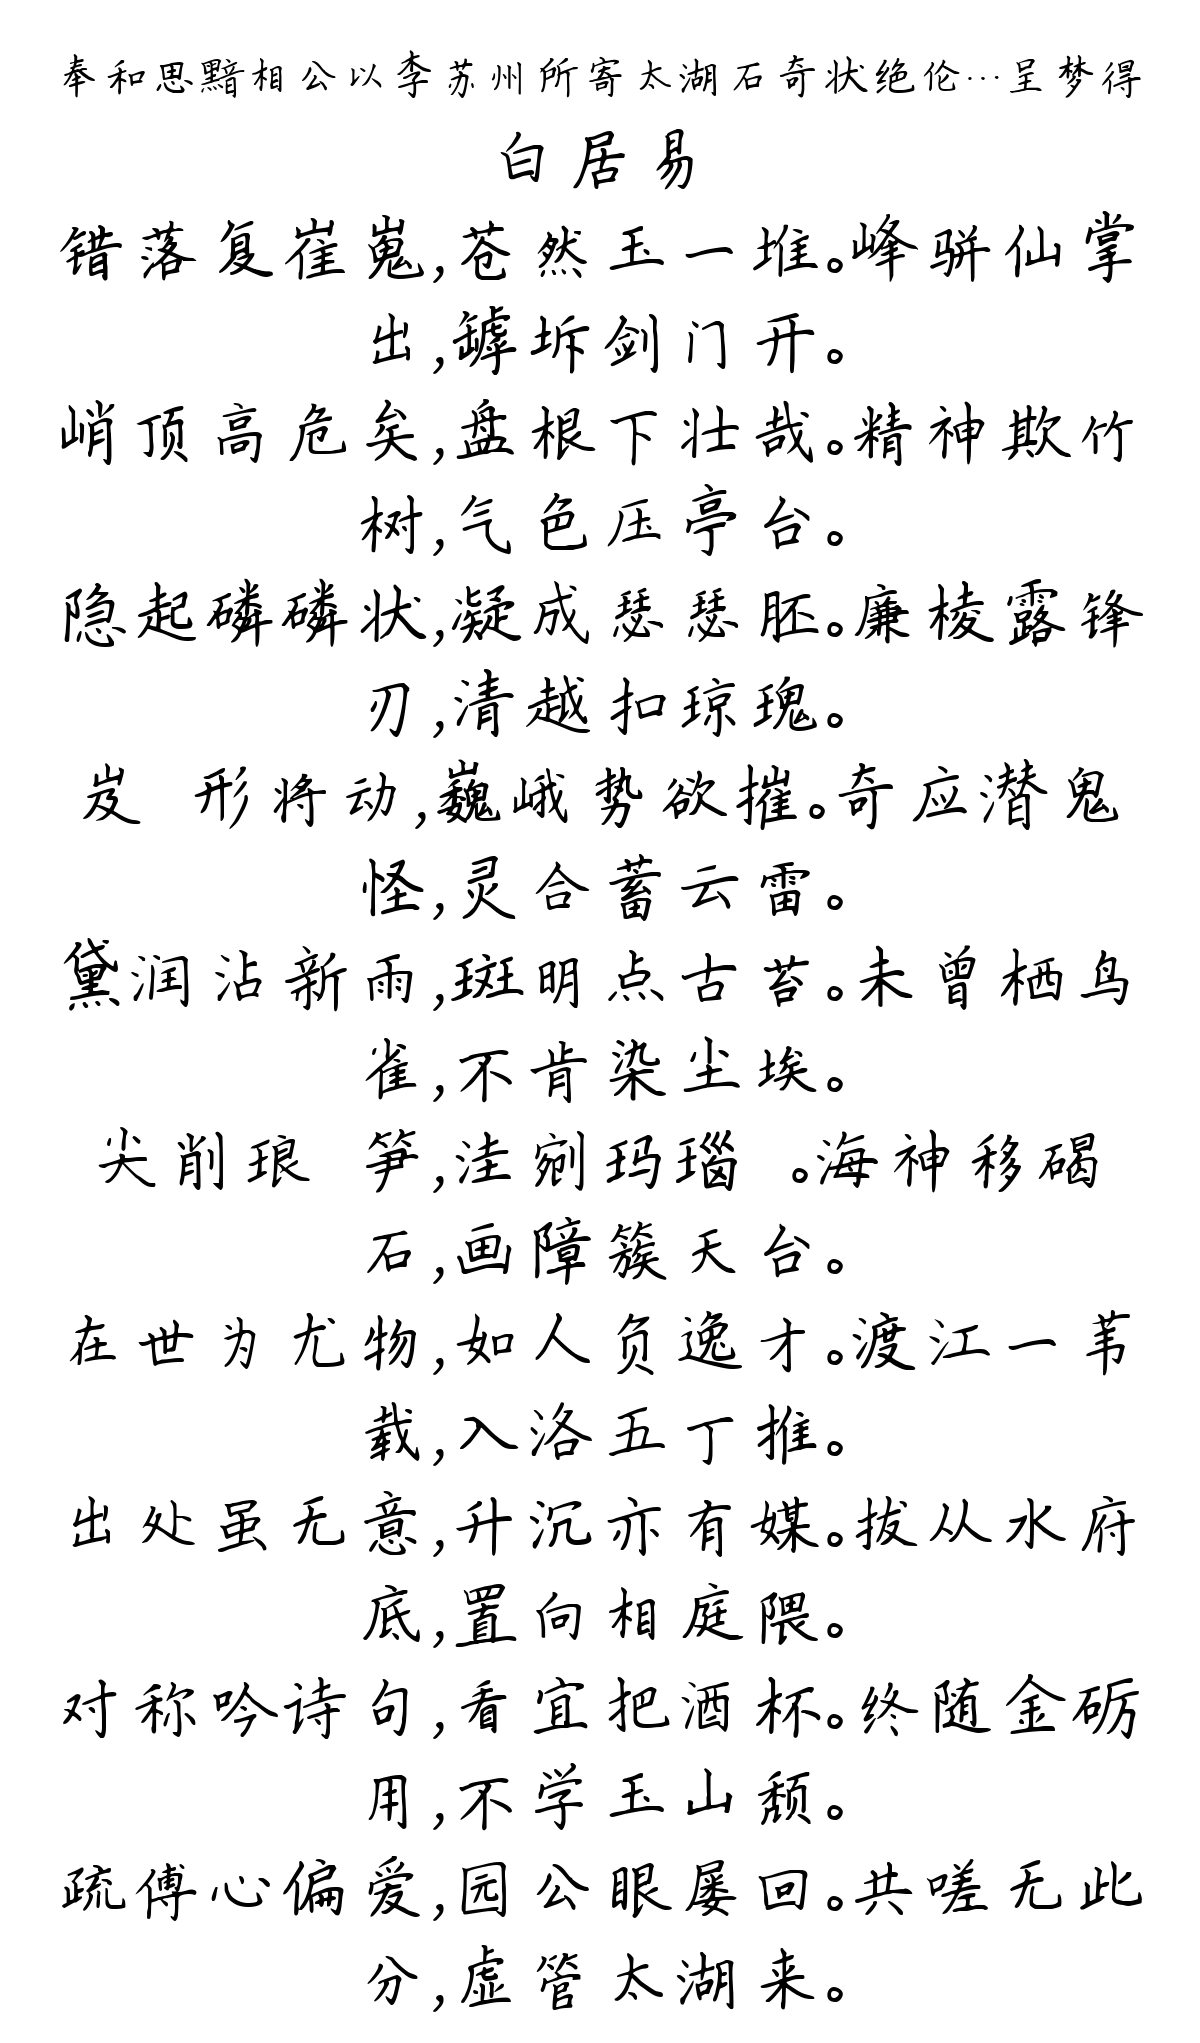 奉和思黯相公以李苏州所寄太湖石奇状绝伦…呈梦得
白居易
错落复崔嵬,苍然玉一堆。峰骈仙掌
出,罅坼剑门开。
峭顶高危矣,盘根下壮哉。精神欺竹
树,气色压亭台。
隐起磷磷状,凝成瑟瑟胚。廉棱露锋
刃,清越扣琼瑰。
岌 形将动,巍峨势欲摧。奇应潜鬼
怪,灵合蓄云雷。
黛润沾新雨,斑明点古苔。未曾栖鸟
雀,不肯染尘埃。
尖削琅 笋,洼剜玛瑙 。海神移碣
石,画障簇天台。
在世为尤物,如人负逸才。渡江一苇
载,入洛五丁推。
出处虽无意,升沉亦有媒。拔从水府
底,置向相庭隈。
对称吟诗句,看宜把酒杯。终随金砺
用,不学玉山颓。
疏傅心偏爱,园公眼屡回。共嗟无此
分,虚管太湖来。